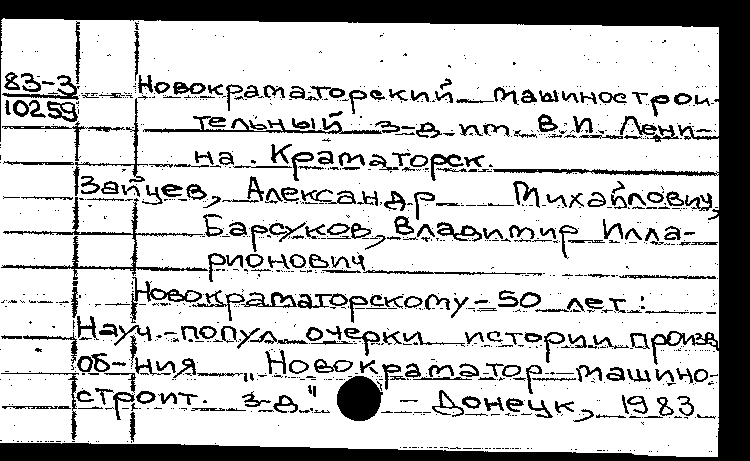 83-3 Новокраматорский машинострои-
10259 тельный з-д им. В.И. Лени-
на. Краматорск.
Зайцев, Александр Михайлович,
Барсуков, Владимир Илла-
рионович
Новокраматорскому - 50 лет:
Науч.-попул. очерки истории произв.
об-ния „Новокраматор. машино-
строит. з-д" - Донецк, 1983